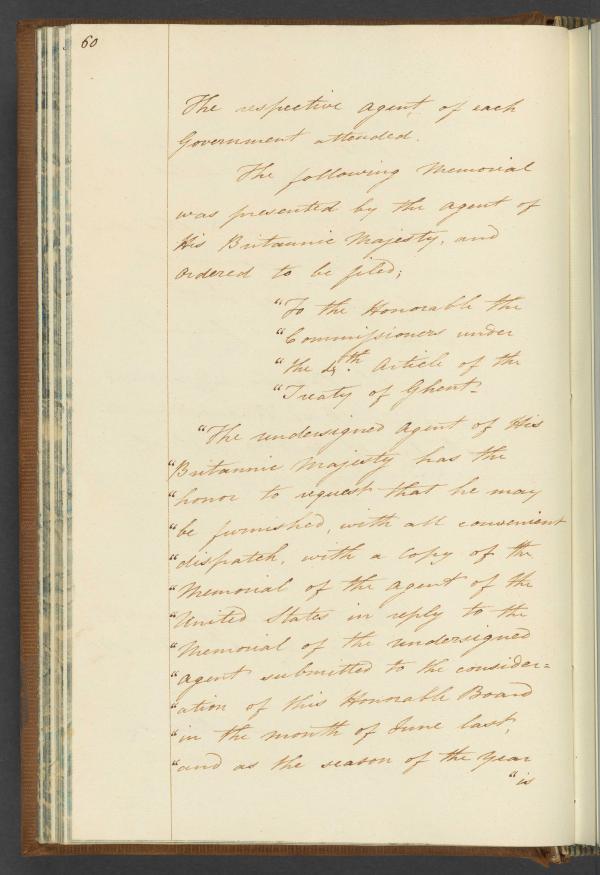 60
The respective Agent, of each
Government attended.
The following Memorial
was presented by the Agent of
His Britannic Majesty, and
Ordered to be filed;
"To the Honorable the
"Commissioners under
"the 4th. Article of the
"Treaty of Ghent-
"The undersigned Agent of His
"Britannic Majesty has the
"honor to request that he may
"be furnished, with all convenient
"dispatch, with a Copy of the
"Memorial of the Agent of the
"United States in reply to the
"Memorial of the undersigned
"Agent submitted to the consider=
"ation of this Honorable Board
"in the month of June last,
"and as the season of the Year
"is